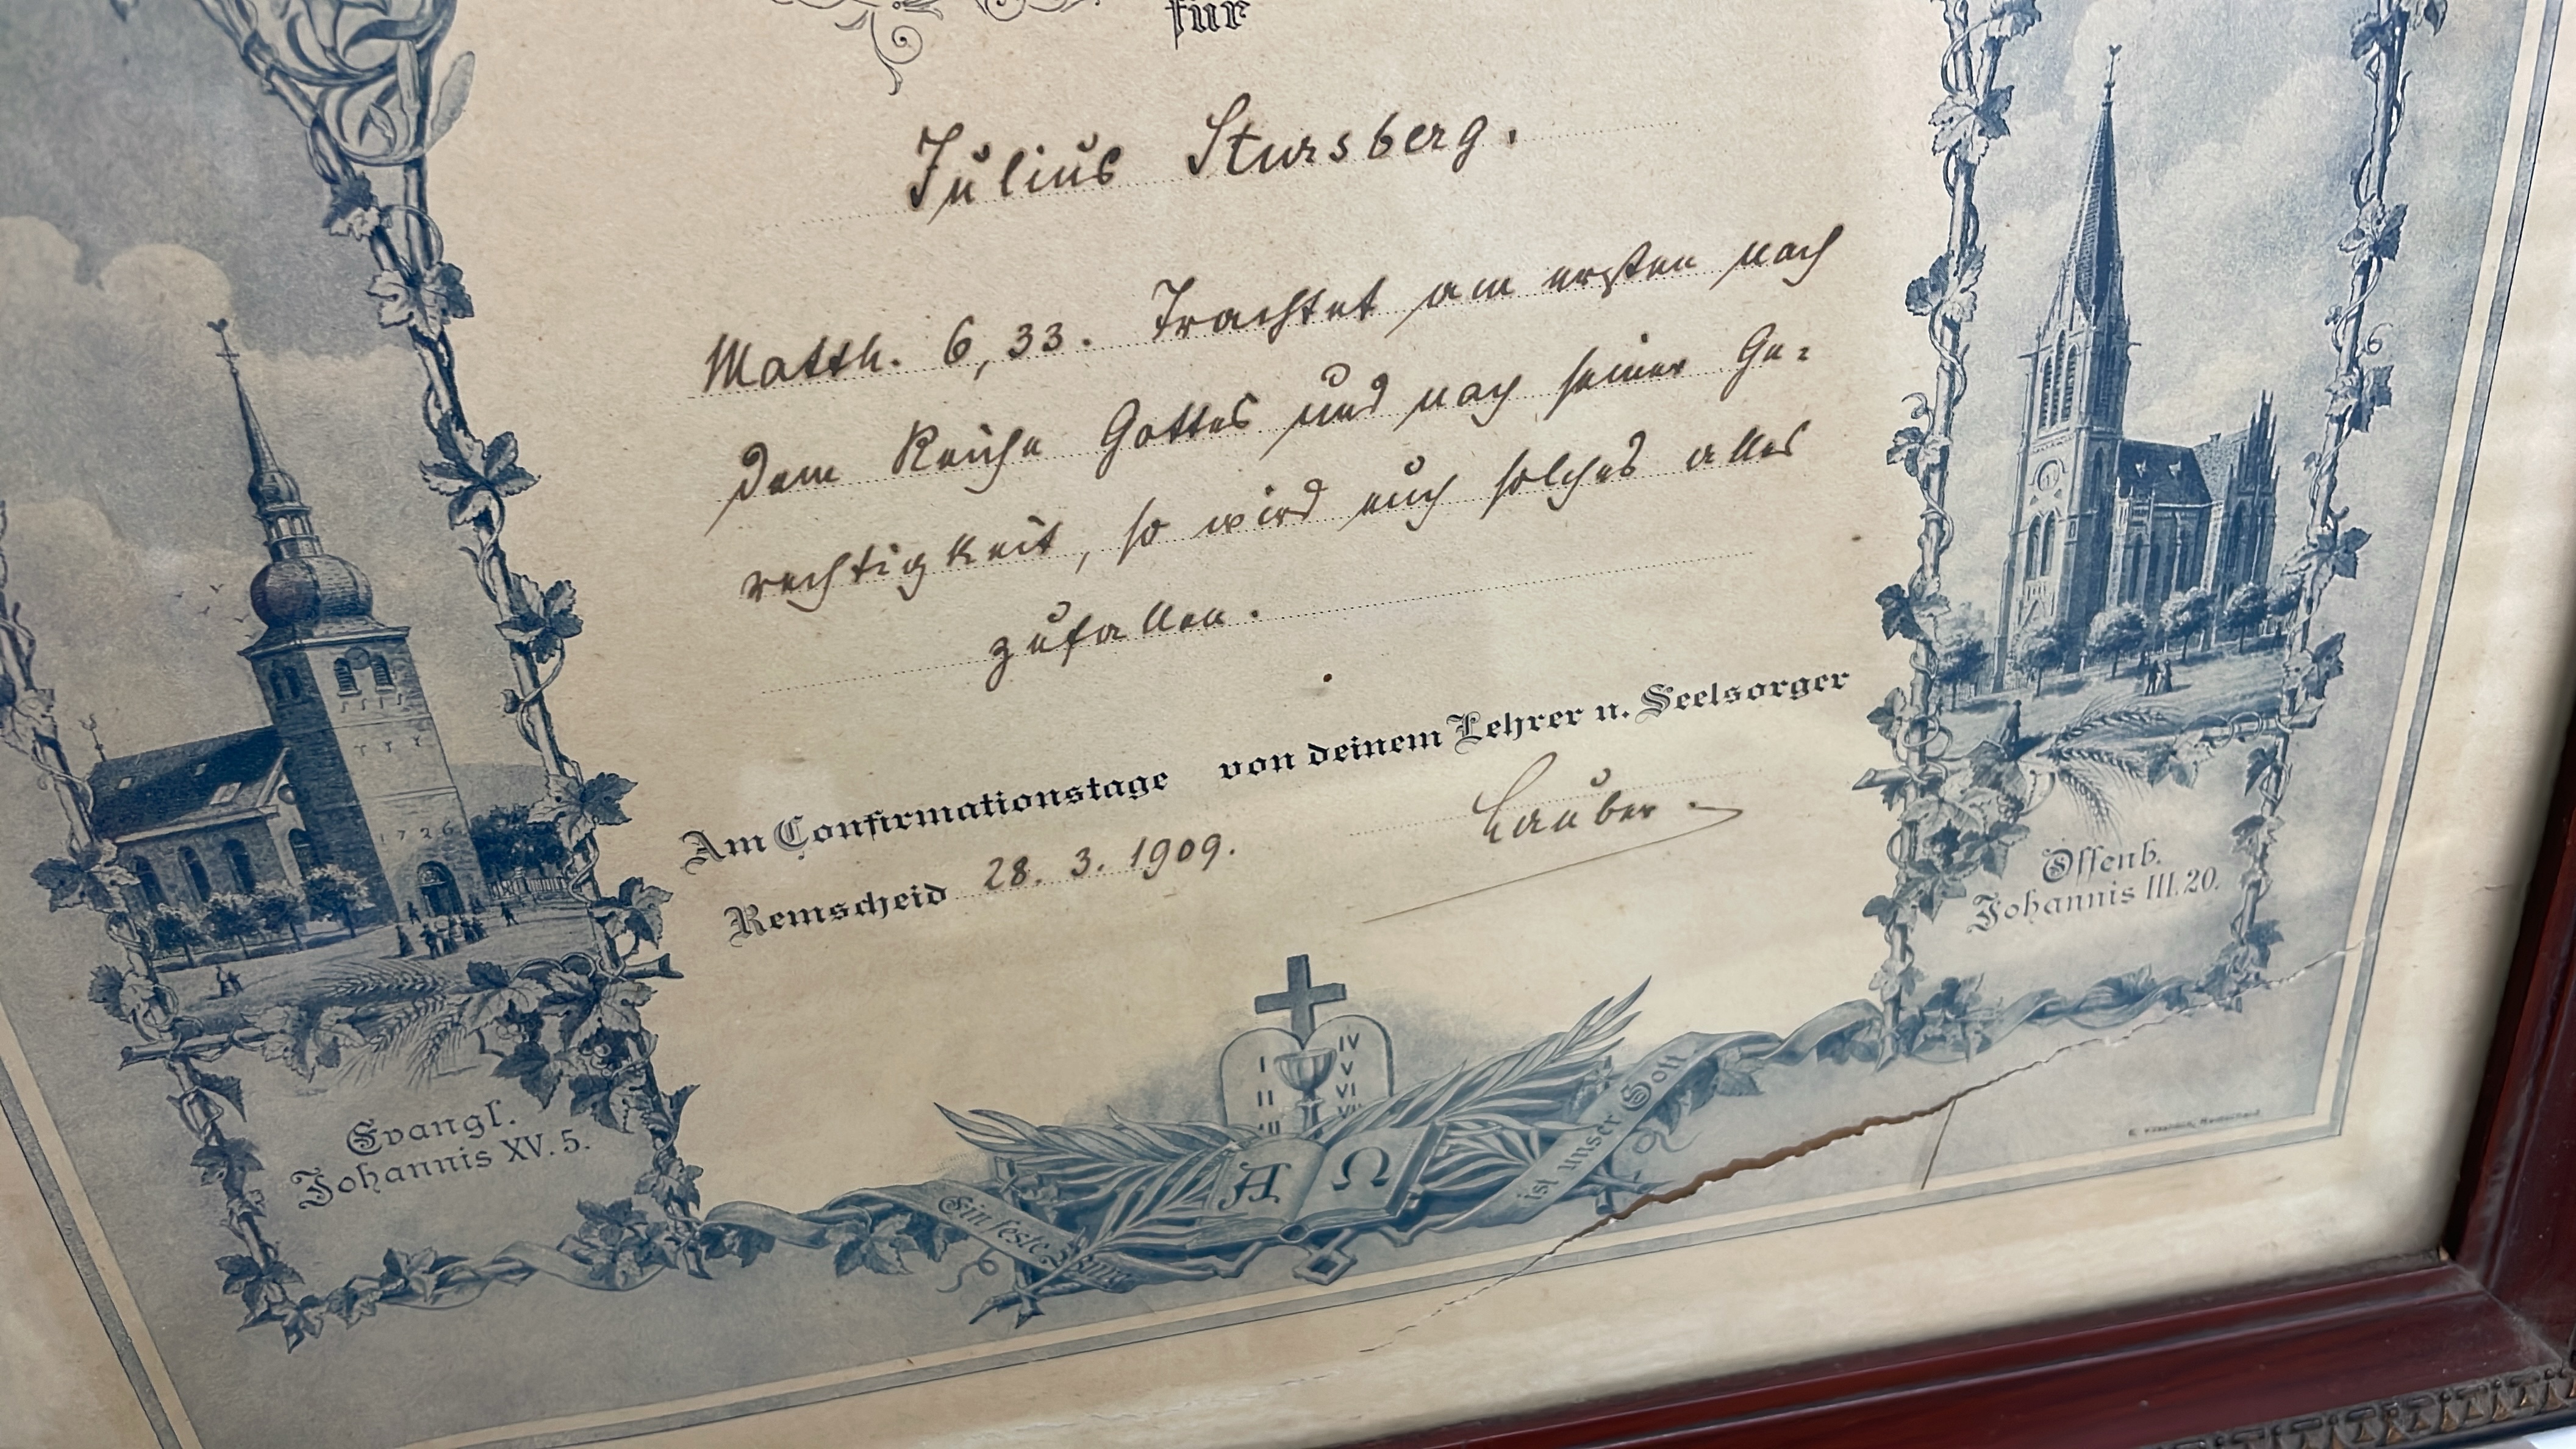 für
Julius Stursberg.
Matth. 6, 33. Trachtet am ersten nach
dem Reiche Gottes und nach seiner Ge=
rechtigkeit, so wird euch solches alles
zufallen.
Am Confirmationstage von deinem Lehrer u. Seelsorger
Remscheid 28. 3. 1909. Lauber.
1726
Evangl.
Johannis XV. 5.
Offenb.
Johannis III. 20.
I
II
IV
V
VI
VII
A Ω
Ein feste Burg
ist unser Gott
Remscheid